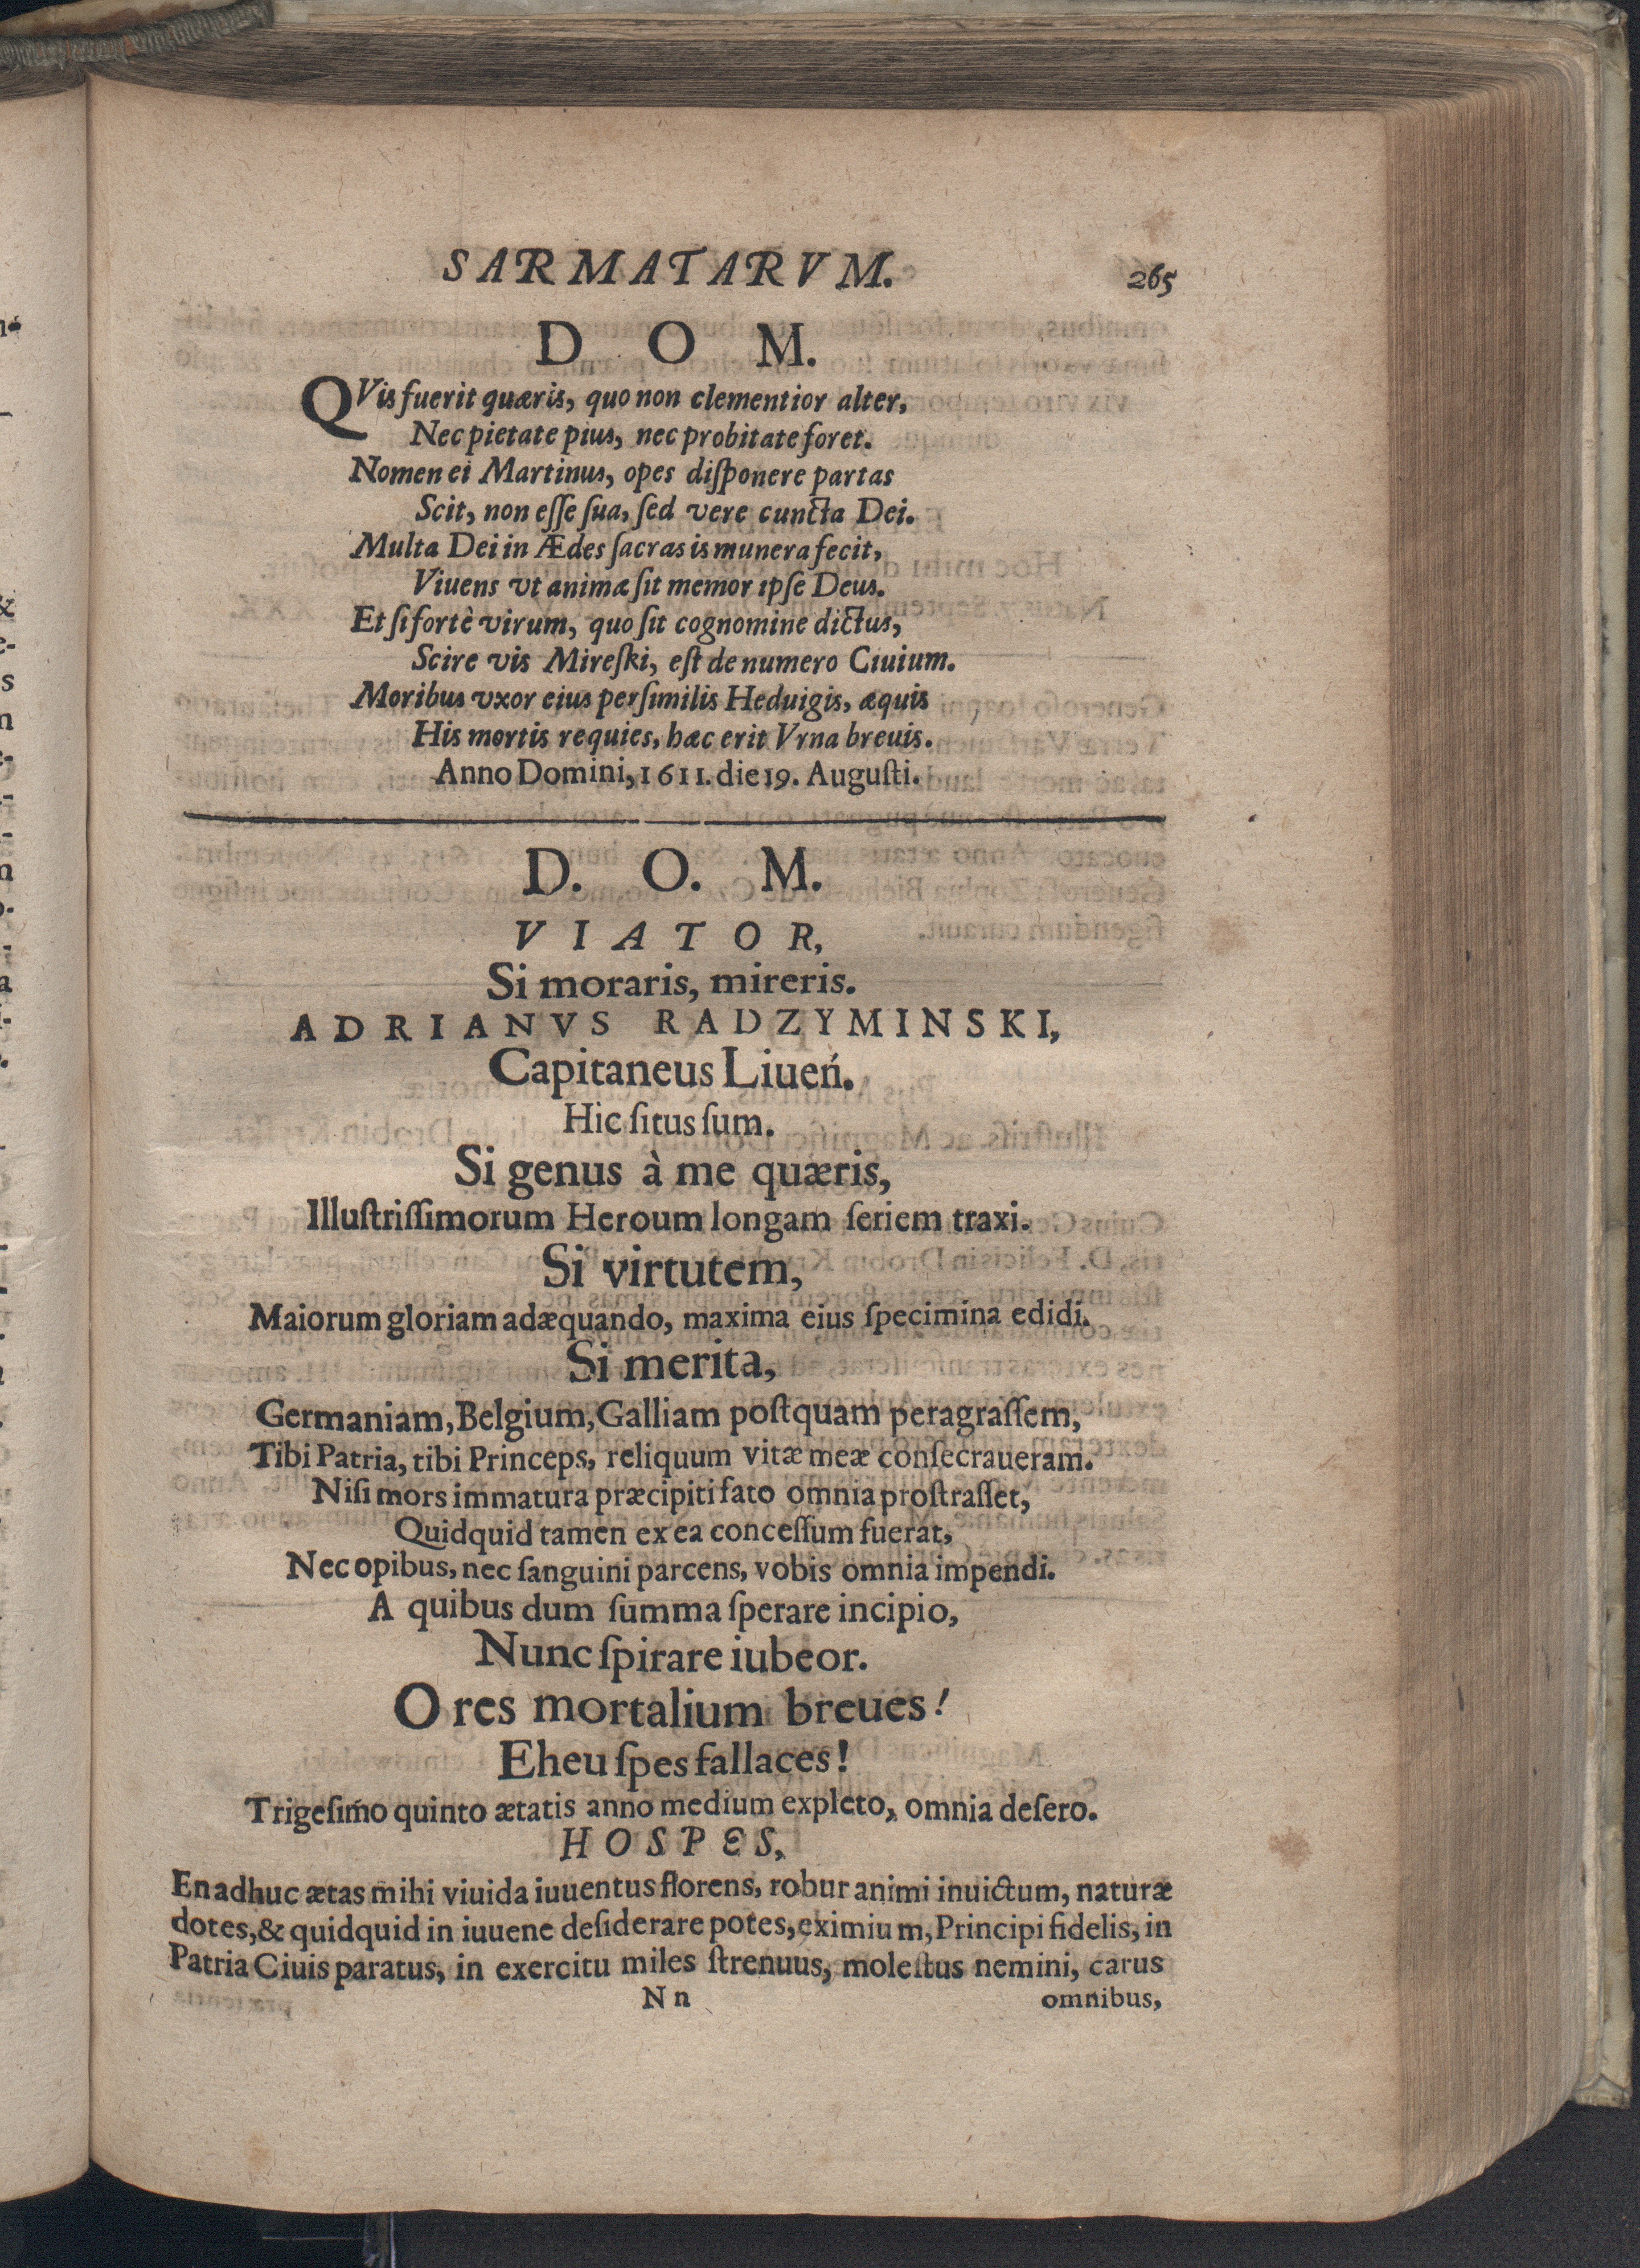 SARMATARVM. 265
D O M.
QVis fuerit quæris, quo non clementior alter,
Nec pietate pius, nec probitate foret.
Nomen ei Martinus, opes diſponere partas
Scit, non eſſe ſua, ſed vere cuncta Dei.
Multa Dei in Ædes ſacras is munera fecit,
Viuens vt animæ ſit memor ipſe Deus.
Et ſi fortè virum, quo ſit cognomine dictus,
Scire vis Mireſki, eſt de numero Ciuium.
Moribus vxor eius perſimilis Heduigis, æquis
His mortis requies, hæc erit Vrna breuis.
Anno Domini, 1611. die 19. Auguſti.
D. O. M.
VIATOR,
Si moraris, mireris.
ADRIANVS RADZYMINSKI,
Capitaneus Liueń.
Hic ſitus ſum.
Si genus à me quæris,
Illuſtriſſimorum Heroum longam ſeriem traxi.
Si virtutem,
Maiorum gloriam adæquando, maxima eius ſpecimina edidi.
Si merita,
Germaniam, Belgium, Galliam poſtquam peragraſſem,
Tibi Patria, tibi Princeps, reliquum vitæ meæ conſecraueram.
Niſi mors immatura præcipiti fato omnia proſtraſſet,
Quidquid tamen ex ea conceſſum fuerat,
Nec opibus, nec ſanguini parcens, vobis omnia impendi.
A quibus dum ſumma ſperare incipio,
Nunc ſpirare iubeor.
O res mortalium breues!
Eheu ſpes fallaces!
Trigeſimo quinto ætatis anno medium expleto, omnia deſero.
HOSPES,
En adhuc ætas mihi viuida iuuentus florens, robur animi inuictum, naturæ
dotes, & quidquid in iuuene deſiderare potes, eximium, Principi fidelis, in
Patria Ciuis paratus, in exercitu miles ſtrenuus, moleſtus nemini, carus
Nn omnibus,